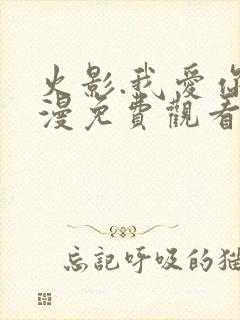 火影.我愛你
漫免費觀看
忘記呼吸的猫